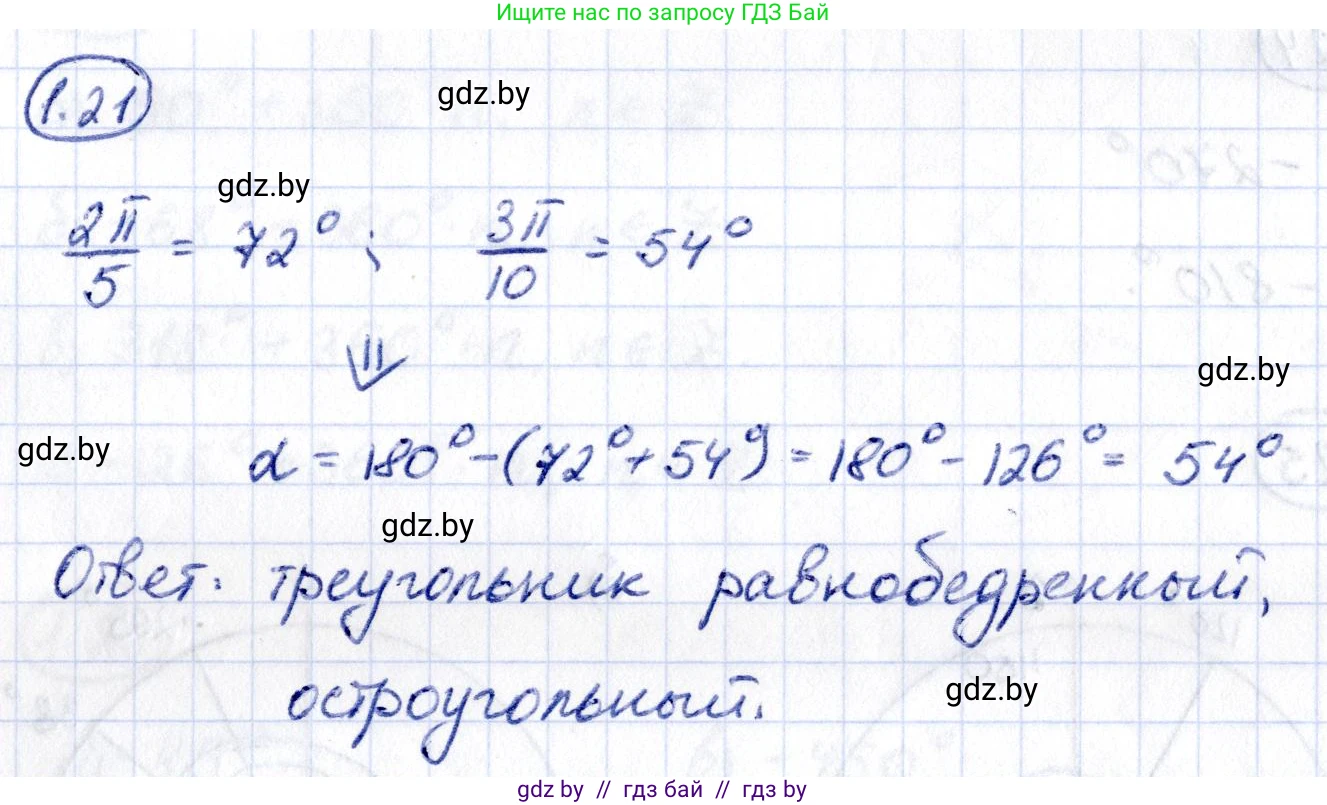 Ищите нас по запросу ГДЗ Бай
1.21
gdz.by
gdz.by
2π/5 = 72°; 3π/10 = 54°
⇓
gdz.by
gdz.by
α = 180° - (72° + 54°) = 180° - 126° = 54°
gdz.by
Ответ: треугольник равнобедренный,
остроугольный.
gdz.by
gdz by // гдз бай // гдз by